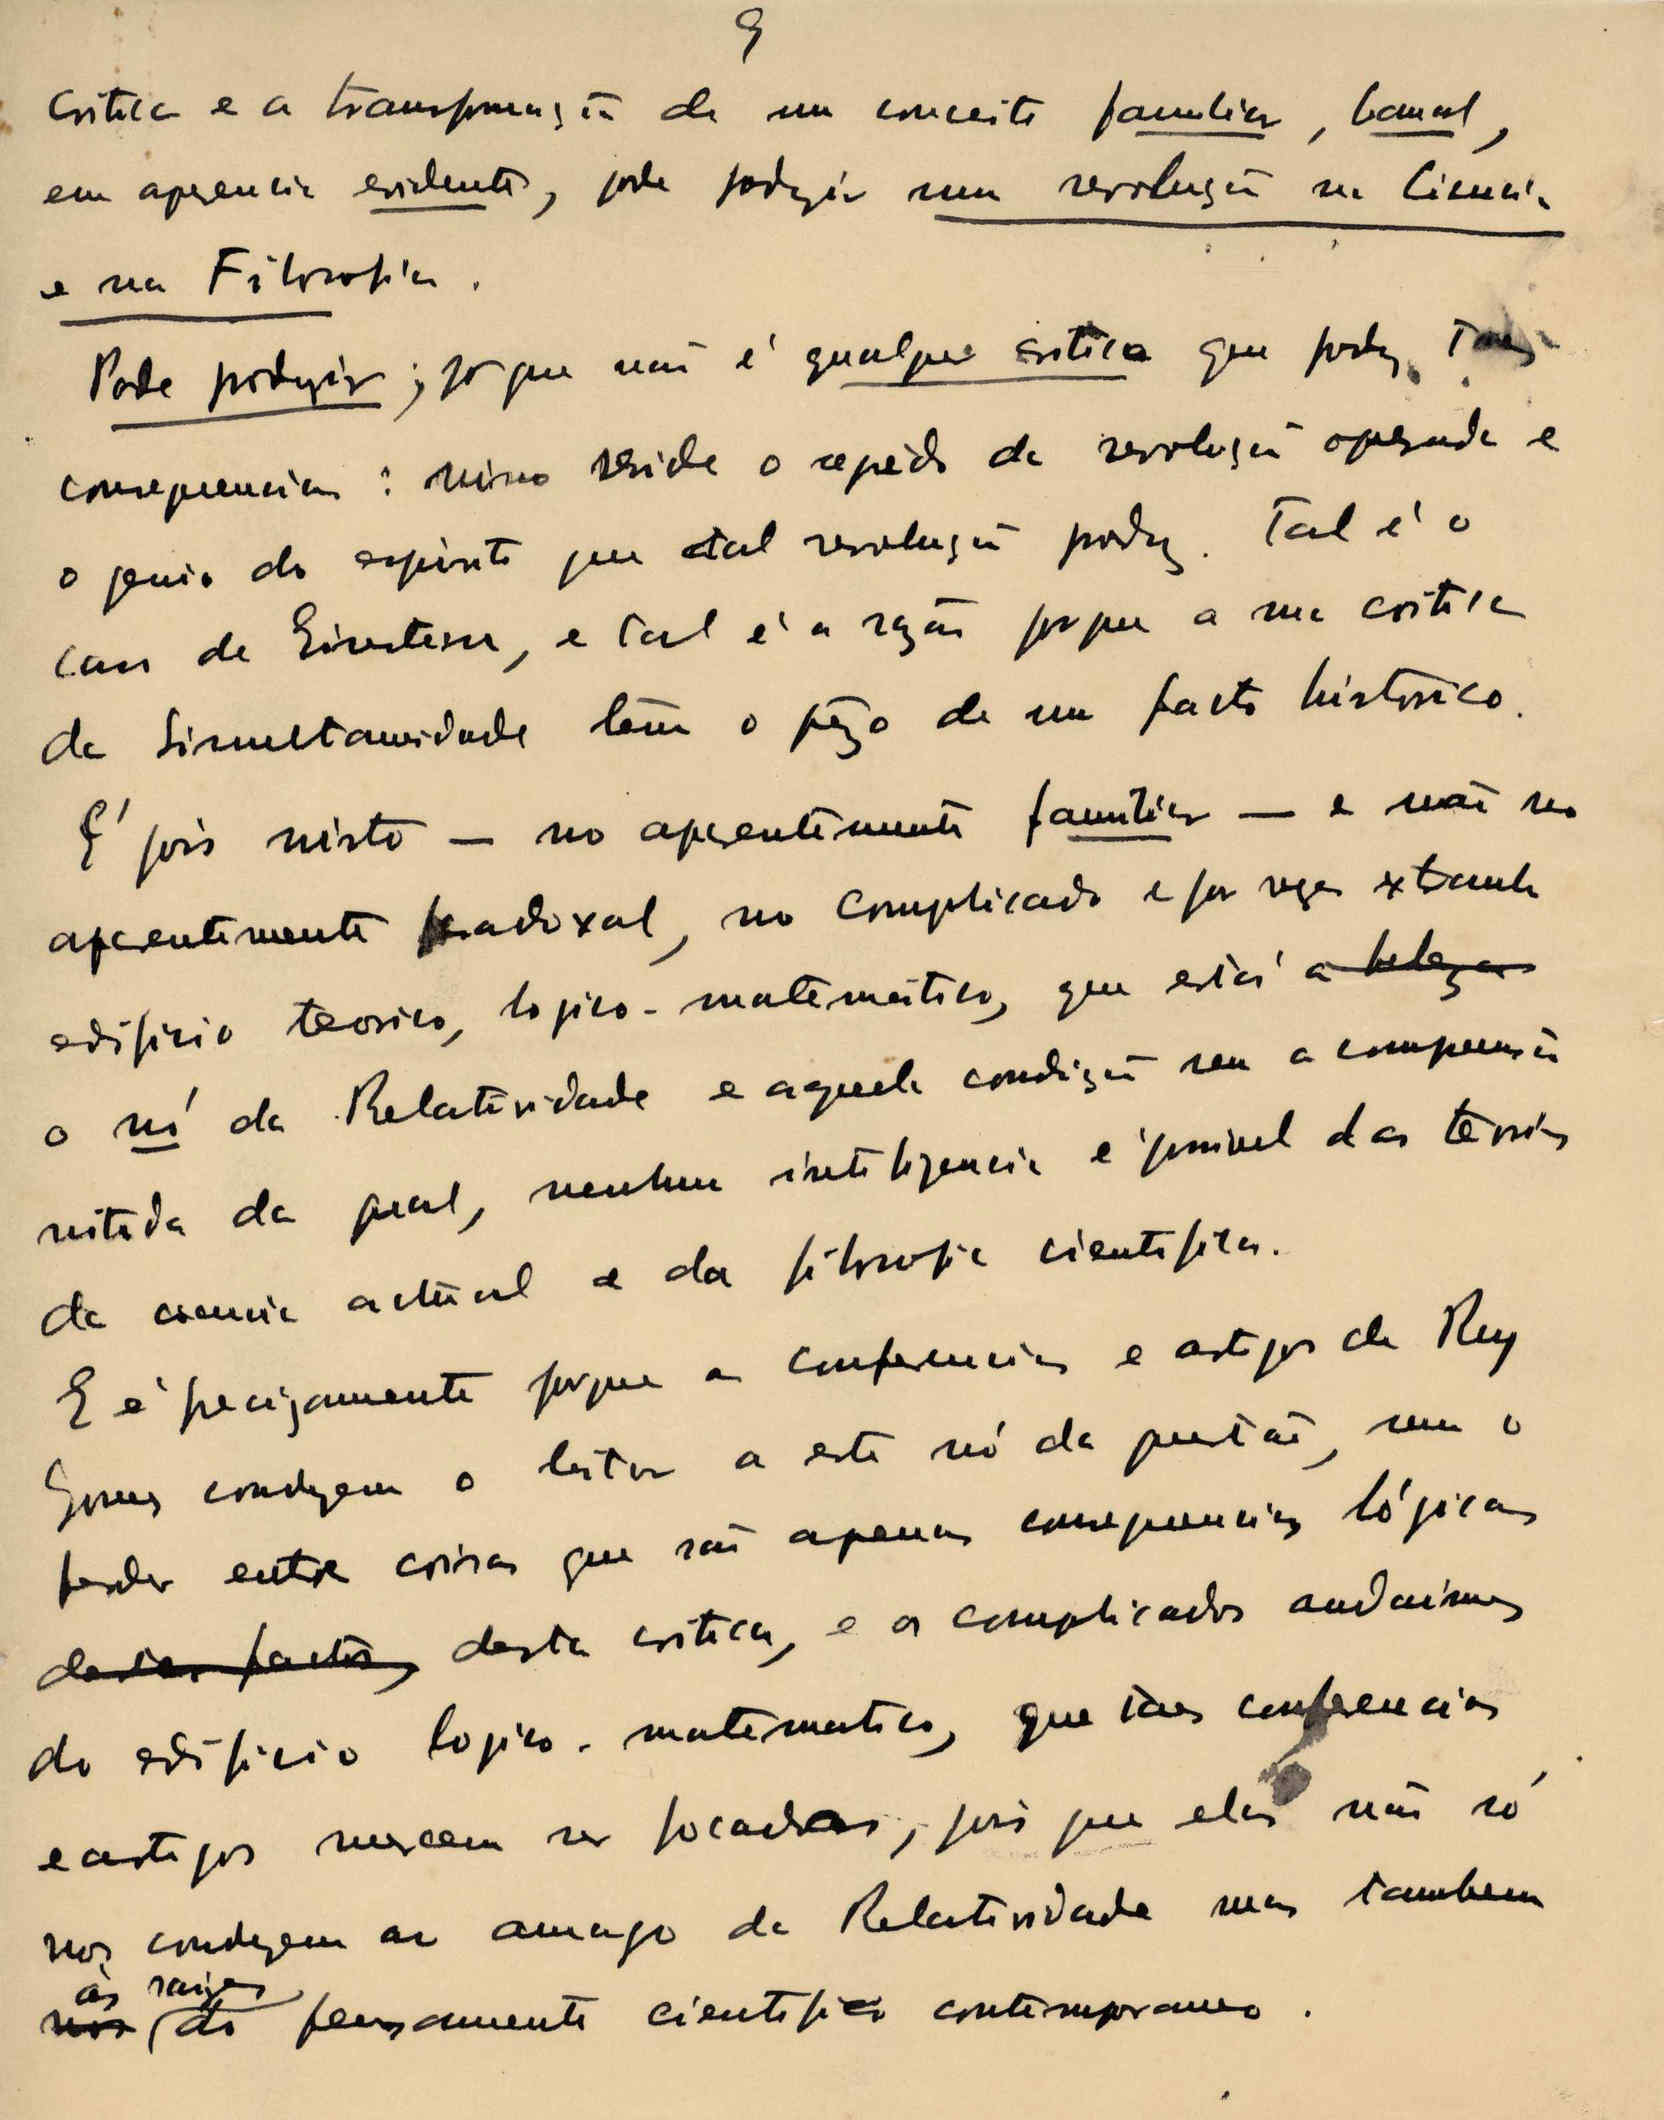 9
critica e a transformação de um conceito familiar, banal,
em aparencia evidente, pode produzir uma revolução na Ciencia
e na Filosofia.
Pode produzir; porque não é qualquer critica que produz taes
consequencias: nisso reside o segrêdo da revolução operada e
o genio do espirito que tal revolução produz. Tal é o
caso de Einstein, e tal é a razão porque a sua critica
da Simultaneidade têm o pêzo de um facto histórico.
É pois nisto — no aparentemente familiar — e não no
aparentemente paradoxal, no complicado e por vezes extranho
edificio teorico, logico-matemático, que está a beleza
o nó da Relatividade e aquela condição sem a compreensão
nitida da qual, nenhuma inteligencia é possivel das teorias
da ciencia actual e da filosofia cientifica.
E é precizamente porque as conferencias e artigos de Ruy
Gomes conduzem o leitor a este nó da questão, sem o
perder entre coisas que são apenas consequencias lógicas
destes factos, desta critica, e os complicados andaimes
do edificio logico-matematico, que taes conferencias
e artigos merecem ser focados, pois que eles não só
nos conduzem ao amago da Relatividade mas tambem
às raizes
nos do pensamento cientifico contemporaneo.